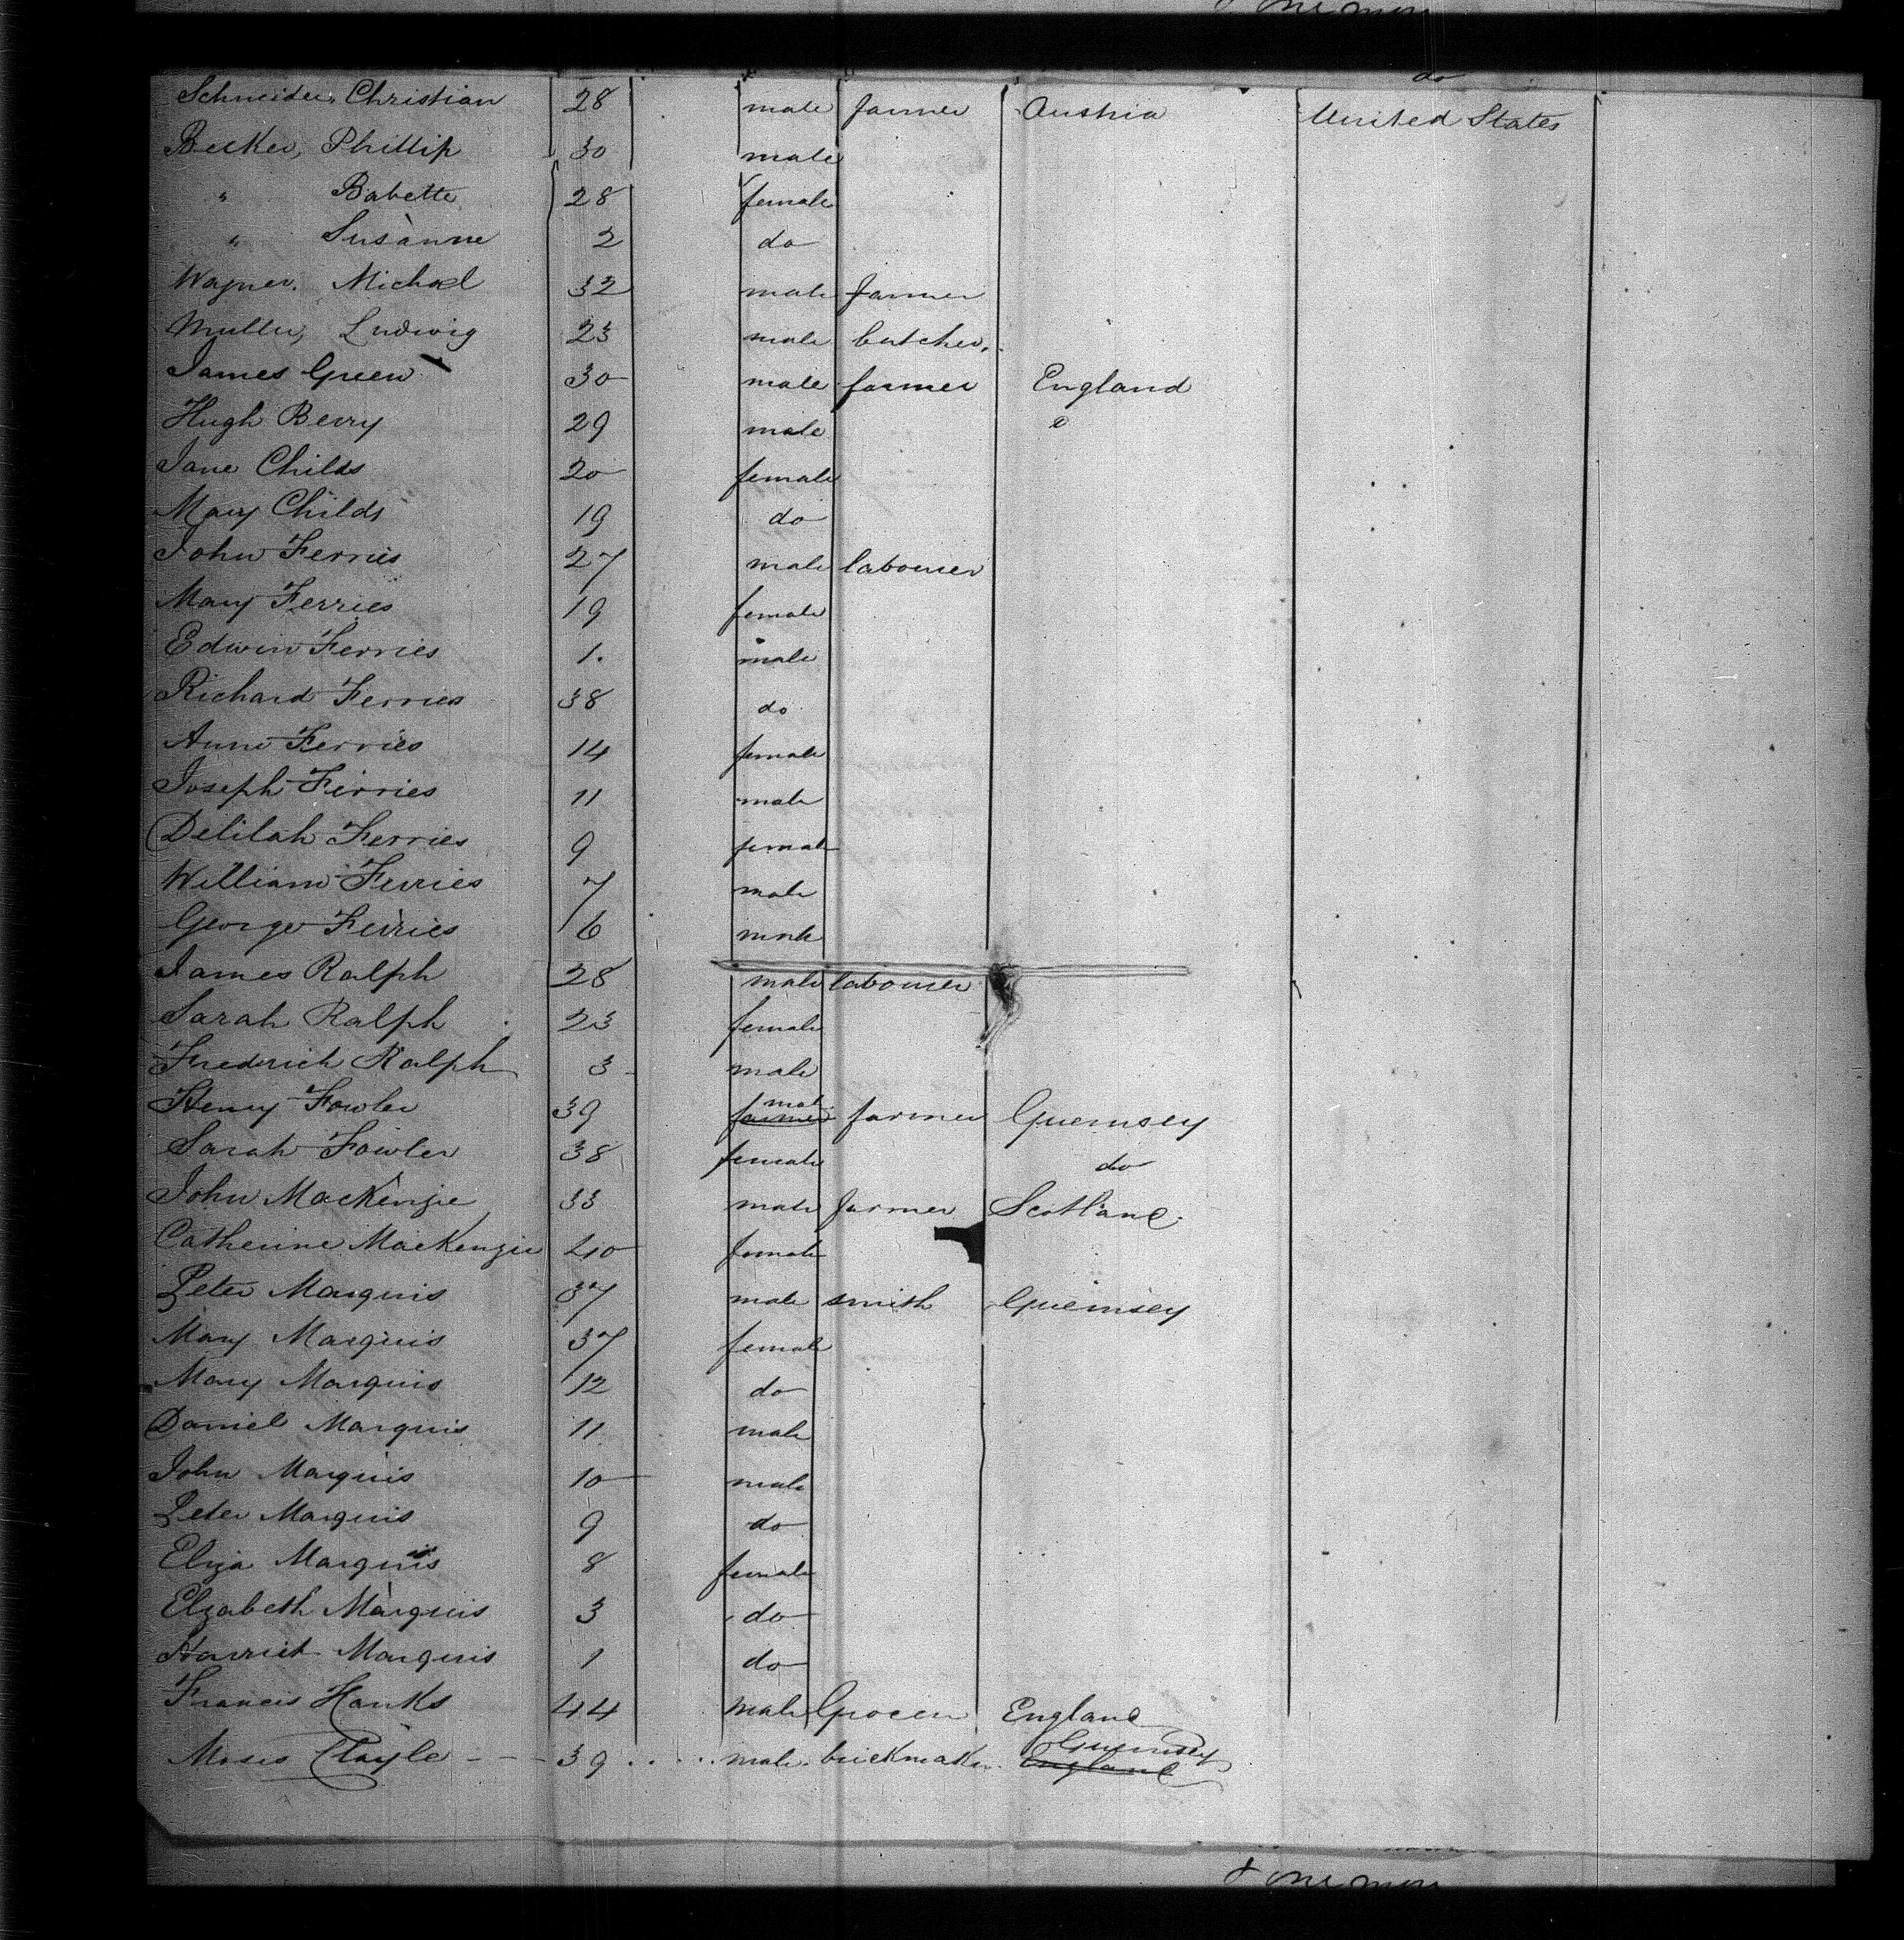 do
Schneider, Christian 28 male farmer Austria United States
Becker, Phillip 30 male
" Babette 28 female
" Susanne 2 do
Wagner, Michael 32 male farmer
Muller, Ludwig 23 male butcher
James Green 30 male farmer England
Hugh Berry 29 male
Jane Childs 20 female
Mary Childs 19 do
John Ferries 27 male labourer
Mary Ferries 19 female
Edwin Ferries 1. male
Richard Ferries 38 do
Anne Ferries 14 female
Joseph Ferries 11 male
Delilah Ferries 9 female
William Ferries 7 male
George Ferries 6 male
James Ralph 28 male labourer
Sarah Ralph 23 female
Frederich Ralph 3 male
Henry Fowler 39 farmer male farmer Guernsey
Sarah Fowler 38 female do
John MacKenzie 33 male farmer Scotland
Catherine MacKenzie 40 female
Peter Marquis 37 male smith Guernsey
Mary Marquis 37 female
Mary Marquis 12 do
Daniel Marquis 11 male
John Marquis 10 male
Peter Marquis 9 do
Eliza Marquis 8 female
Elizabeth Marquis 3 do
Harriet Marquis 1 do
Francis Hanks 44 male Grocer England
Moses 39 male brickmaker England Guernsey